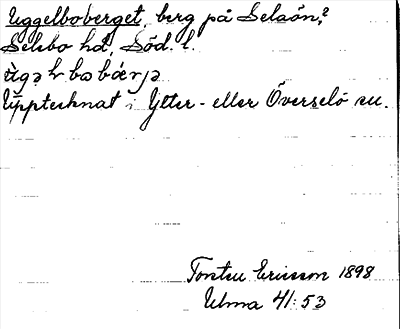 Uggelboberget, berg på Selaön,?
Selebo hd, Söd. l.
Upptecknat i Ytter- eller Överselö sn.
Torsten Ericsson 1898
Ulma 41:53